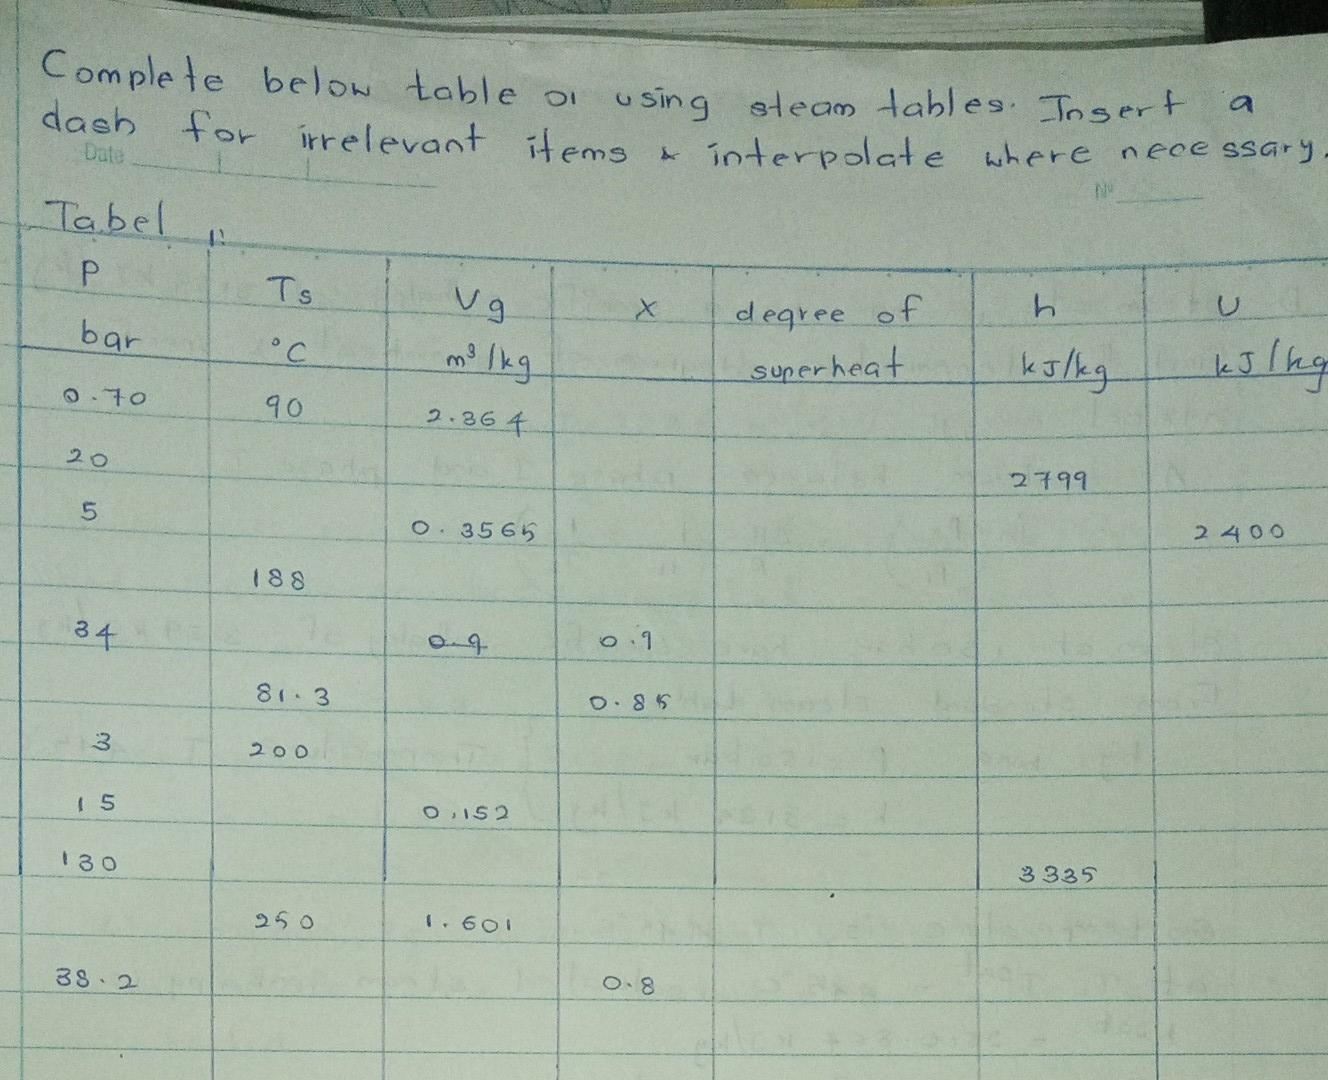 Complete below table 01 using steam tables. Insert a
dash for irrelevant items & interpolate where necessary.
Date
No
Tabel 1:
P bar Ts °C Vg m³/kg x degree of superheat h kJ/kg U kJ/kg
0.70 90 2.364
20 2799
5 0.3565 2400
188
34 0.9 0.9
81.3 0.85
3 200
15 0.152
130 3335
250 1.601
38.2 0.8